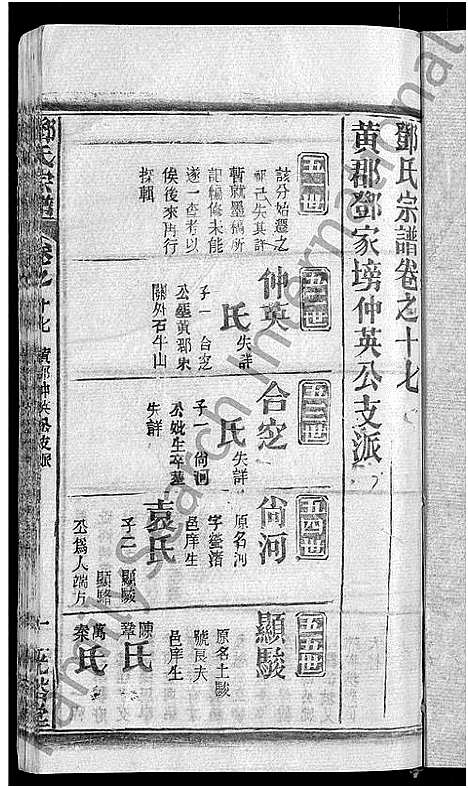 鄧氏宗譜卷之十七
黃郡鄧家塝仲英公支派
五一世
該分始遷之
祖已失其詳
暫就墨稿所
記編修未能
遂一查考以
俟後來再行
採輯
五二世
仲英
氏 失詳
子一 台
公塟黃郡
關外石牛山
五三世
氏 失詳
子一 尙河
公妣生卒塟
失詳
五四世
尙河
原名河
邑庠生
袁氏
子二 顯駿
顯
公爲人端方
五五世
顯駿
原名士駿
號長夫
邑庠生
陳氏
萬氏
秦
鄧氏宗譜
卷之十七 黃郡仲英公支派
一
Family Search International